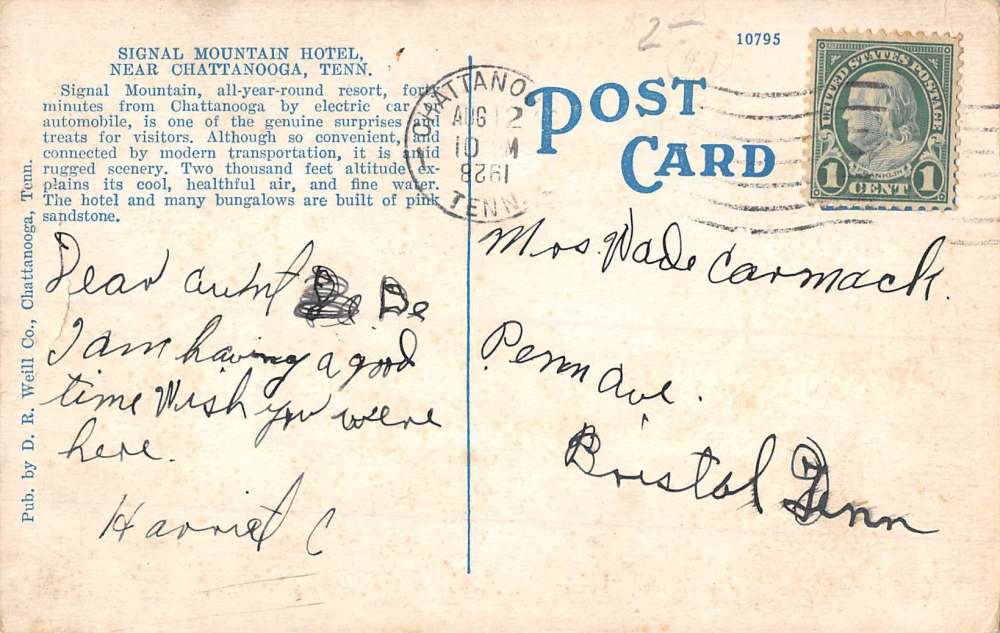 2—
10795
SIGNAL MOUNTAIN HOTEL,
NEAR CHATTANOOGA, TENN.
Signal Mountain, all-year-round resort, forty
minutes from Chattanooga by electric car or
automobile, is one of the genuine surprises and
treats for visitors. Although so convenient, and
connected by modern transportation, it is amid
rugged scenery. Two thousand feet altitude ex-
plains its cool, healthful air, and fine water.
The hotel and many bungalows are built of pink
sandstone.
Pub. by D. R. Weill Co., Chattanooga, Tenn.
CHATTANO
AUG 12
10 M
1928
TENN.
POST
CARD
UNITED STATES POSTAGE
FRANKLIN
1 CENT 1
Dear aunt De
I am having a good
time Wish you were
here.
Harriet C
Mrs. Wade Carmack.
Penn Ave.
Bristol Tenn